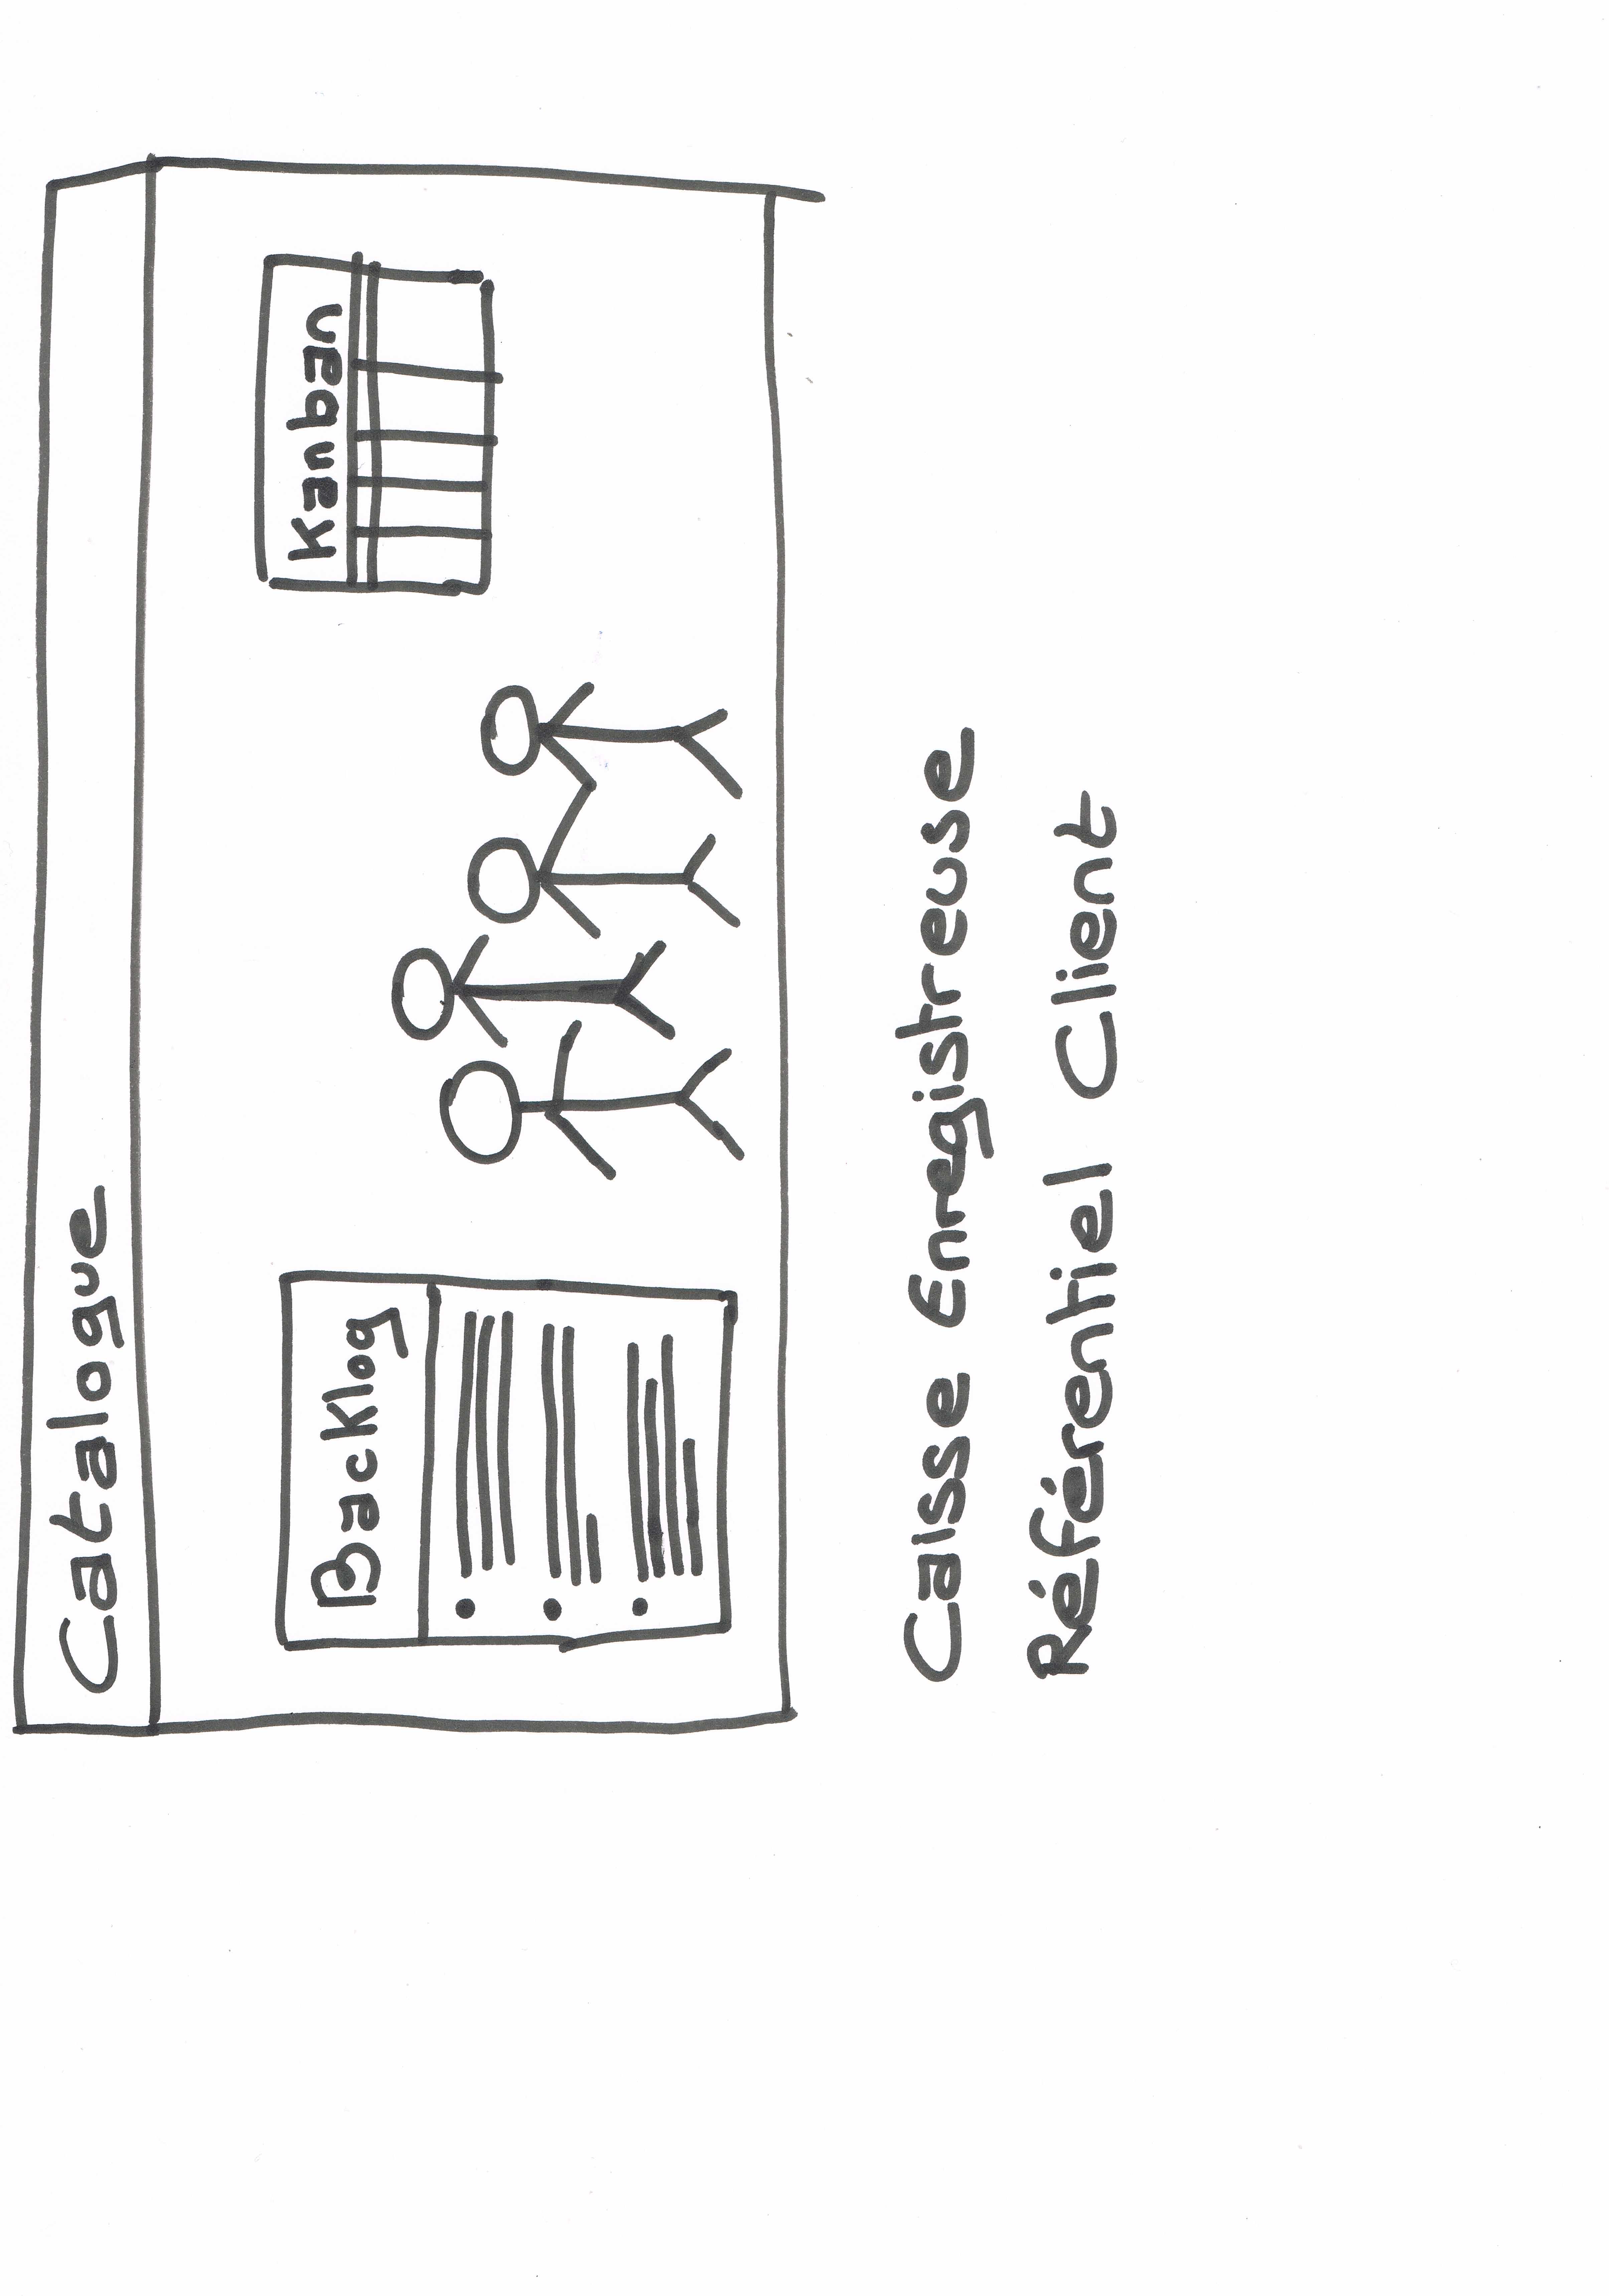 Catalogue
Backlog
Kanban
Caisse Enregistreuse
Référentiel Client